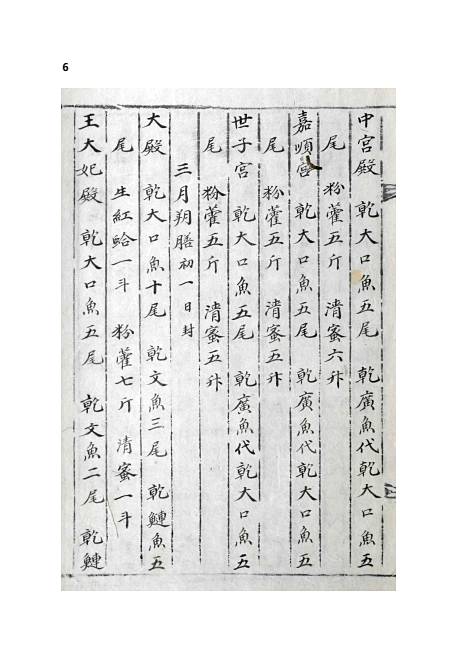 6
中宮殿 乾大口魚五尾 乾廣魚代乾大口魚五
尾 粉藿五斤 清蜜六升
嘉順宮 乾大口魚五尾 乾廣魚代乾大口魚五
尾 粉藿五斤 清蜜五升
世子宮 乾大口魚五尾 乾廣魚代乾大口魚五
尾 粉藿五斤 清蜜五升
三月朔膳初一日封
大殿 乾大口魚十尾 乾文魚三尾 乾鰱魚五
尾 生紅蛤一斗 粉藿七斤 清蜜一斗
王大妃殿 乾大口魚五尾 乾文魚二尾 乾鰱